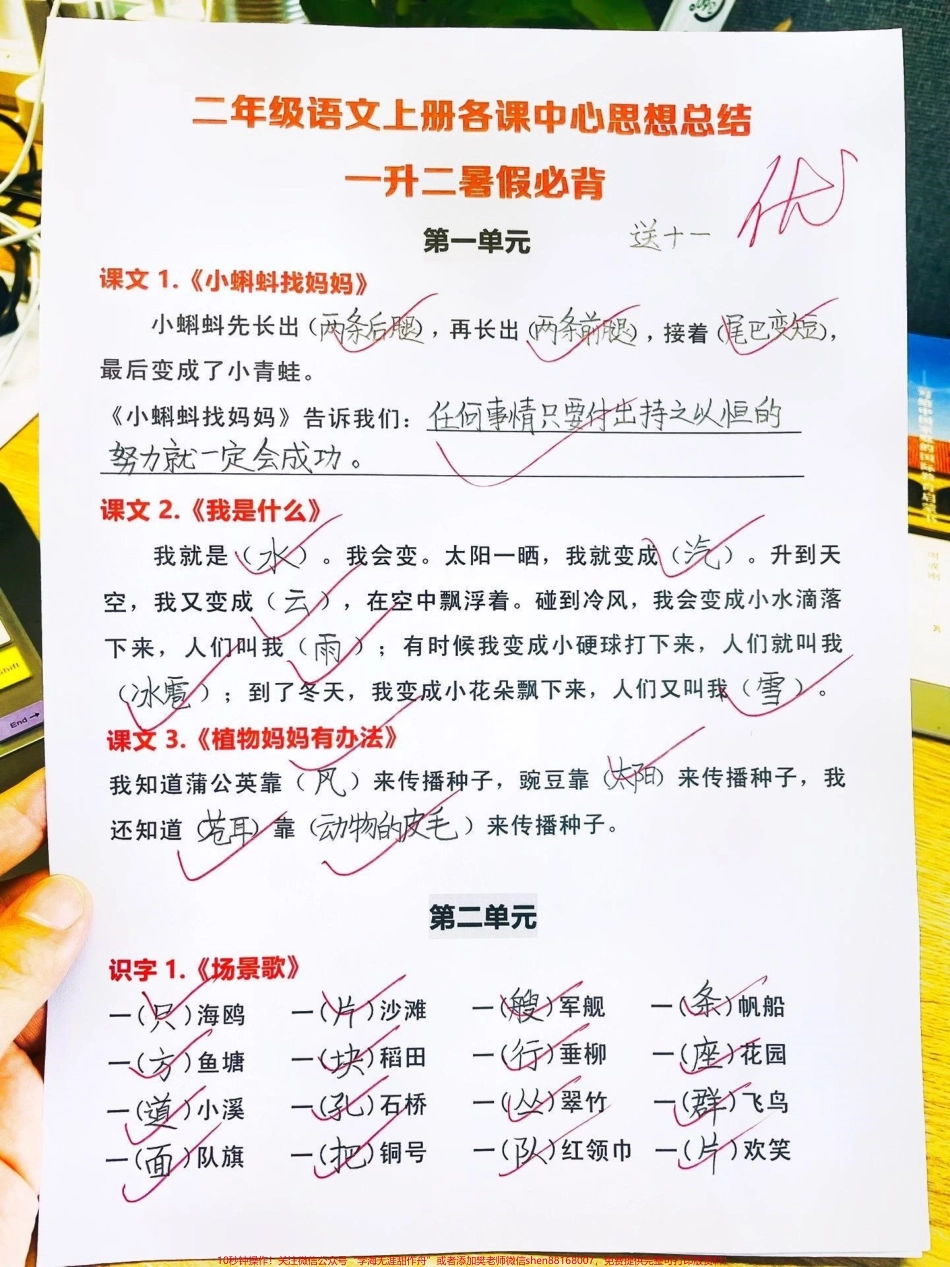 二年级语文上册各课中心思想总结
一升二暑假必背
优
第一单元 送十一
课文 1.《小蝌蚪找妈妈》
小蝌蚪先长出(两条后腿),再长出(两条前腿),接着(尾巴变短),
最后变成了小青蛙。
《小蝌蚪找妈妈》告诉我们:任何事情只要付出持之以恒的
努力就一定会成功。
课文 2.《我是什么》
我就是(水)。我会变。太阳一晒,我就变成(汽)。升到天
空,我又变成(云),在空中飘浮着。碰到冷风,我会变成小水滴落
下来,人们叫我(雨);有时候我变成小硬球打下来,人们就叫我
(冰雹);到了冬天,我变成小花朵飘下来,人们又叫我(雪)。
课文 3.《植物妈妈有办法》
我知道蒲公英靠(风)来传播种子,豌豆靠(太阳)来传播种子,我
还知道(苍耳)靠(动物的皮毛)来传播种子。
第二单元
识字 1.《场景歌》
一(只)海鸥 一(片)沙滩 一(艘)军舰 一(条)帆船
一(方)鱼塘 一(块)稻田 一(行)垂柳 一(座)花园
一(道)小溪 一(孔)石桥 一(丛)翠竹 一(群)飞鸟
一(面)队旗 一(把)铜号 一(队)红领巾 一(片)欢笑
End
10秒钟操作!关注微信公众号"学海无涯甜作舟"或者添加樊老师微信shen88168007,免费提供完整可打印版资料